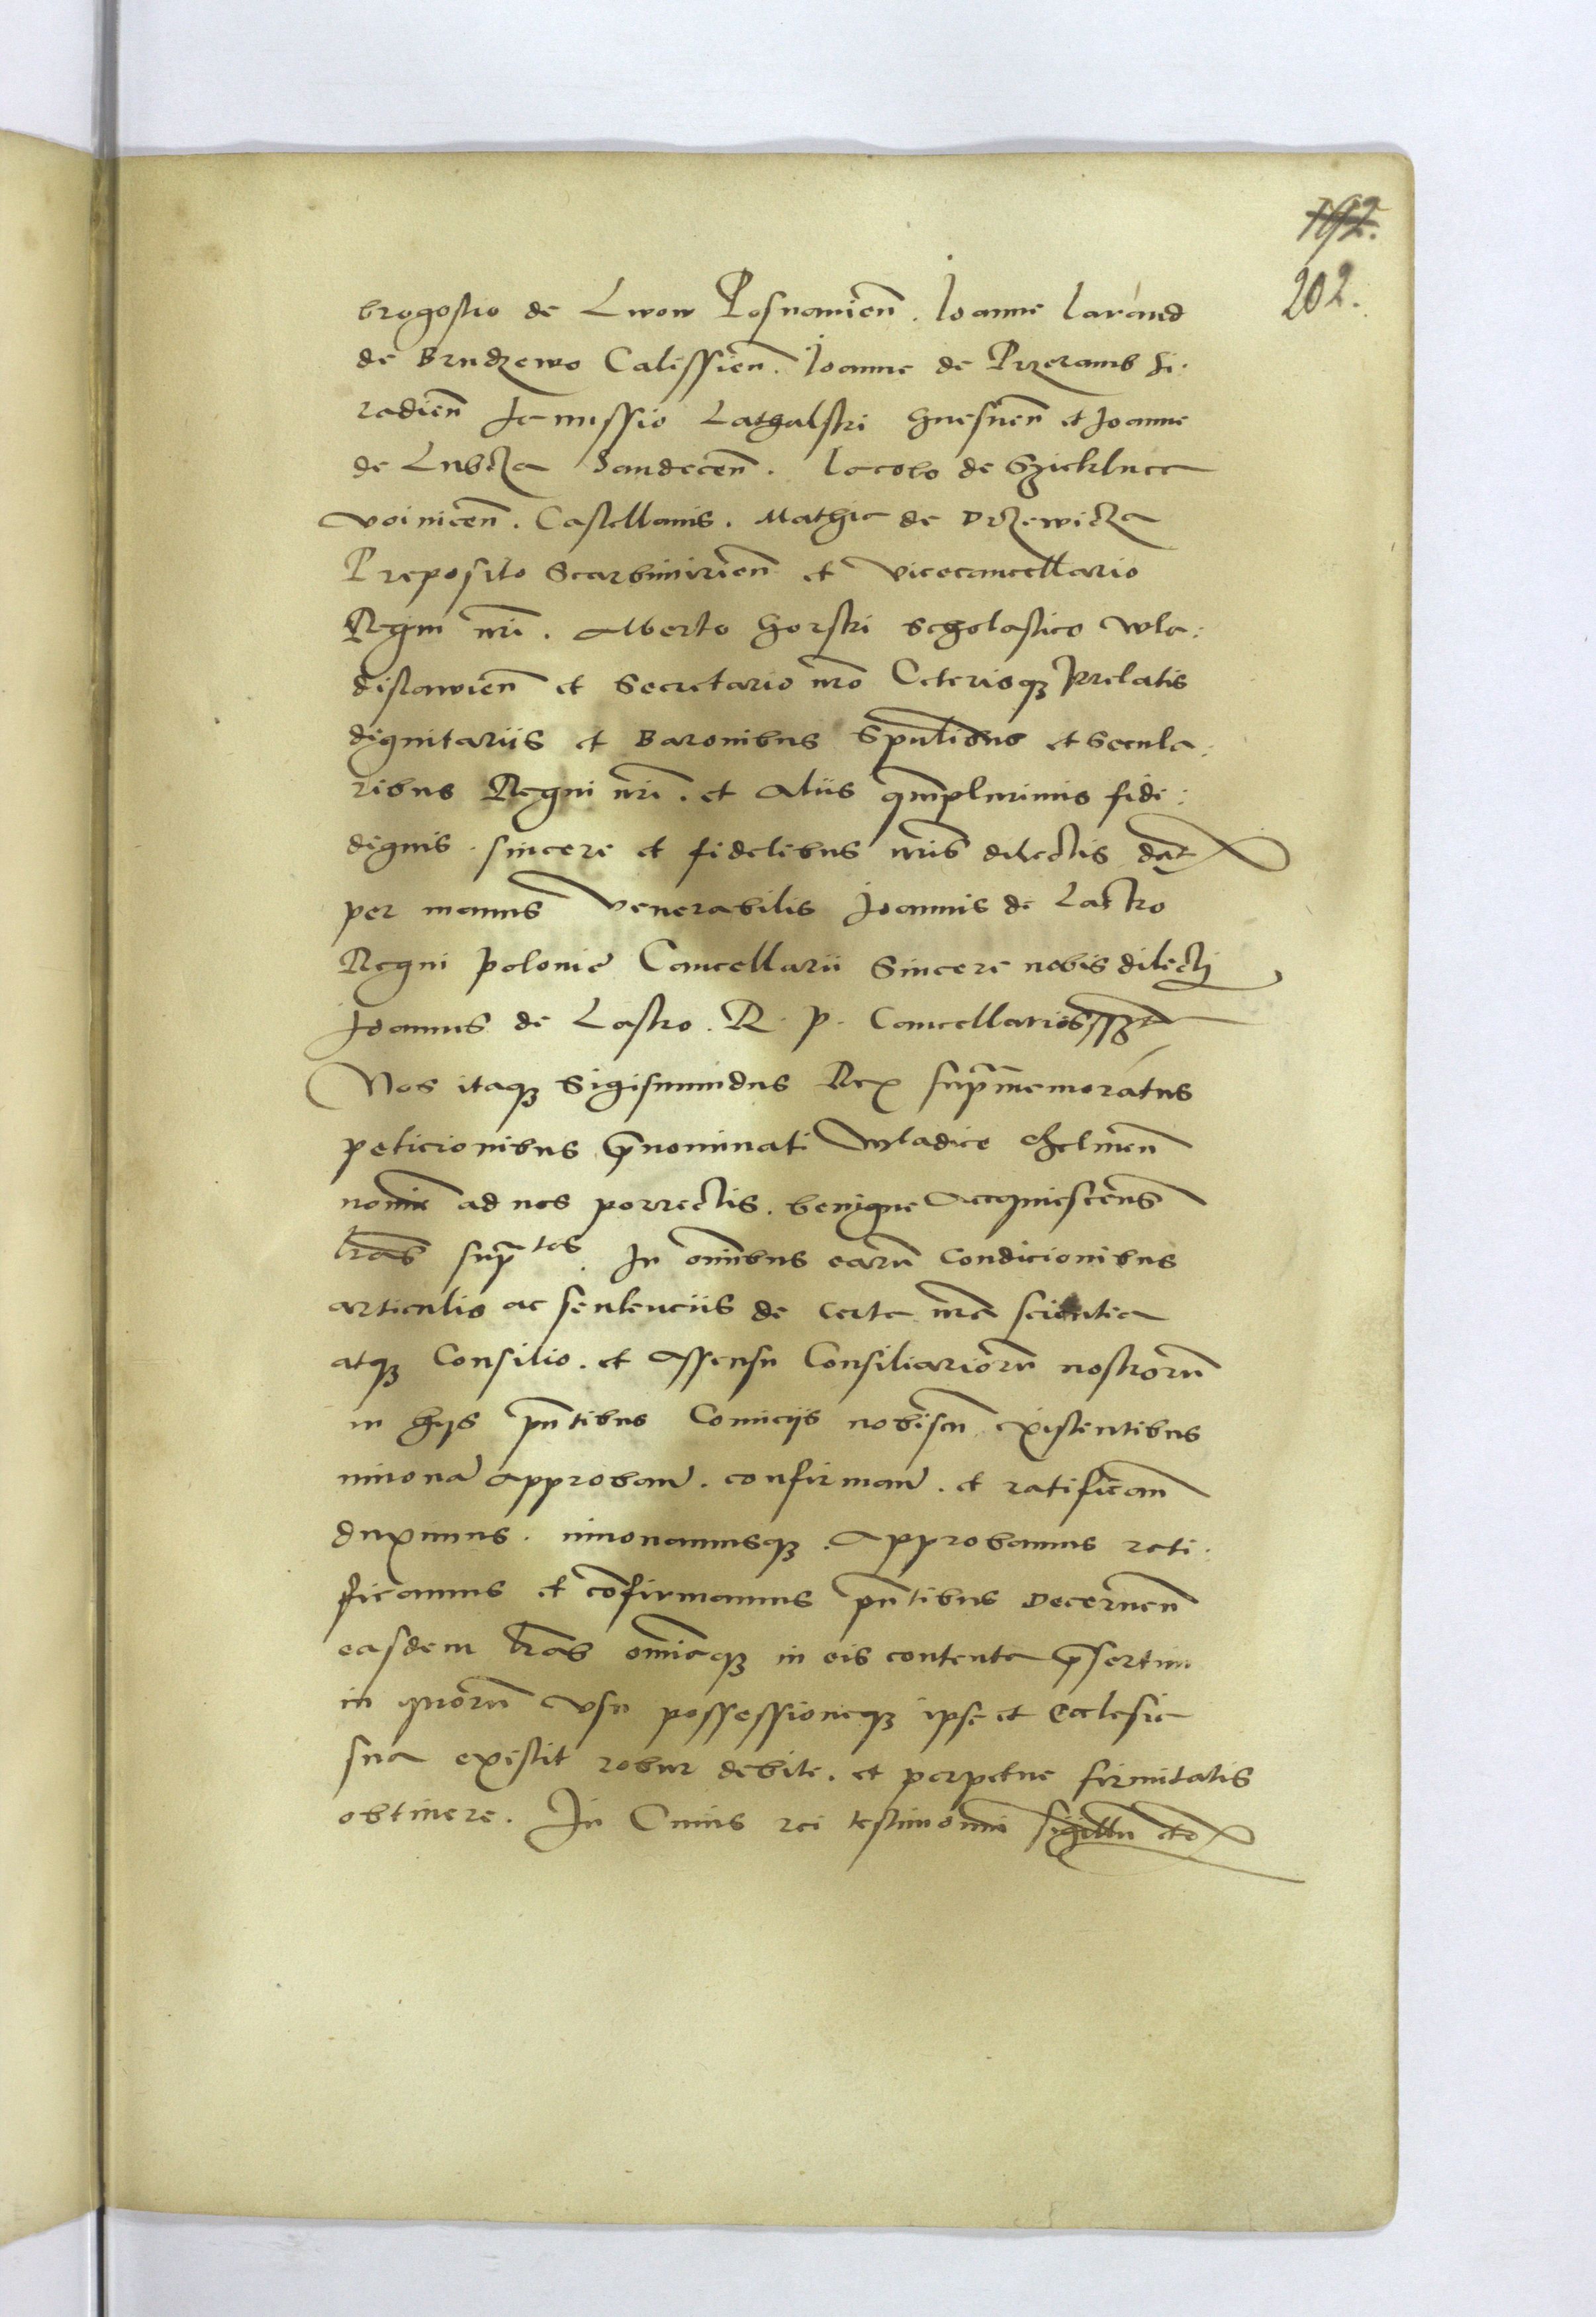 192.
202.
brogostio de Lwow Posnanien̄. Joanne Jarand
de Brudzewo Calissien̄. Joanne de Przeramb Si.
radien̄ Janussio Lathalski Gnesnen̄ et Joanne
de Lubcza Sandecen̄. Jacobo de Szieklucca
voinicen̄. Castellanis. Mathia de Drzewicza
Preposito Scarbimirien̄ et Vicecancellario
Regni nr̄i. Alberto Gorski Scholastico Wla:
dislawien̄ et Secretario nr̄o Ceterisq₃ Prelatis
dignitariis et Baronibus Spūalibus et Secula:
ribus Regni nr̄i. et Aliis qm̄plurimis fidi:
dignis. sincere et fidelibus nr̄is dilectis dat̄
per manus Venerabilis Joannis de Lasko
Regni Polonie Cancellarii Sincere nobis dilecti
Joannes de Lasko. R. P. Cancellarius sszt
Nos itaq₃ Sigismundus Rex sup̄memoratus
peticionibus p̄nominati Wladice Chelmen̄
nomine ad nos porrectis. benigne Acquiescens
lr̄as sup̄tas. In om̄ibus earū Condicionibus
articulis ac sentenciis de certa nr̄a scientia
atq₃ Consilio. et Assensu Consiliariorū nostrorū
in hijs pn̄tibus Comicijs nobiscū existentibus
innouan̄ approban̄. confirman̄. et ratifican̄
duximus. innouamusq₃. Approbamus rati.
ficamus et cōfirmamus pn̄tibus Decernen̄
easdem lr̄as om̄iaq₃ in eis contenta p̄sertim
in quorū vsu possessioneq₃ ipse et Ecclesia
sua existit robur debite. et perpetue firmitatis
obtinere. In Cuius rei testimoniū sigillū etc